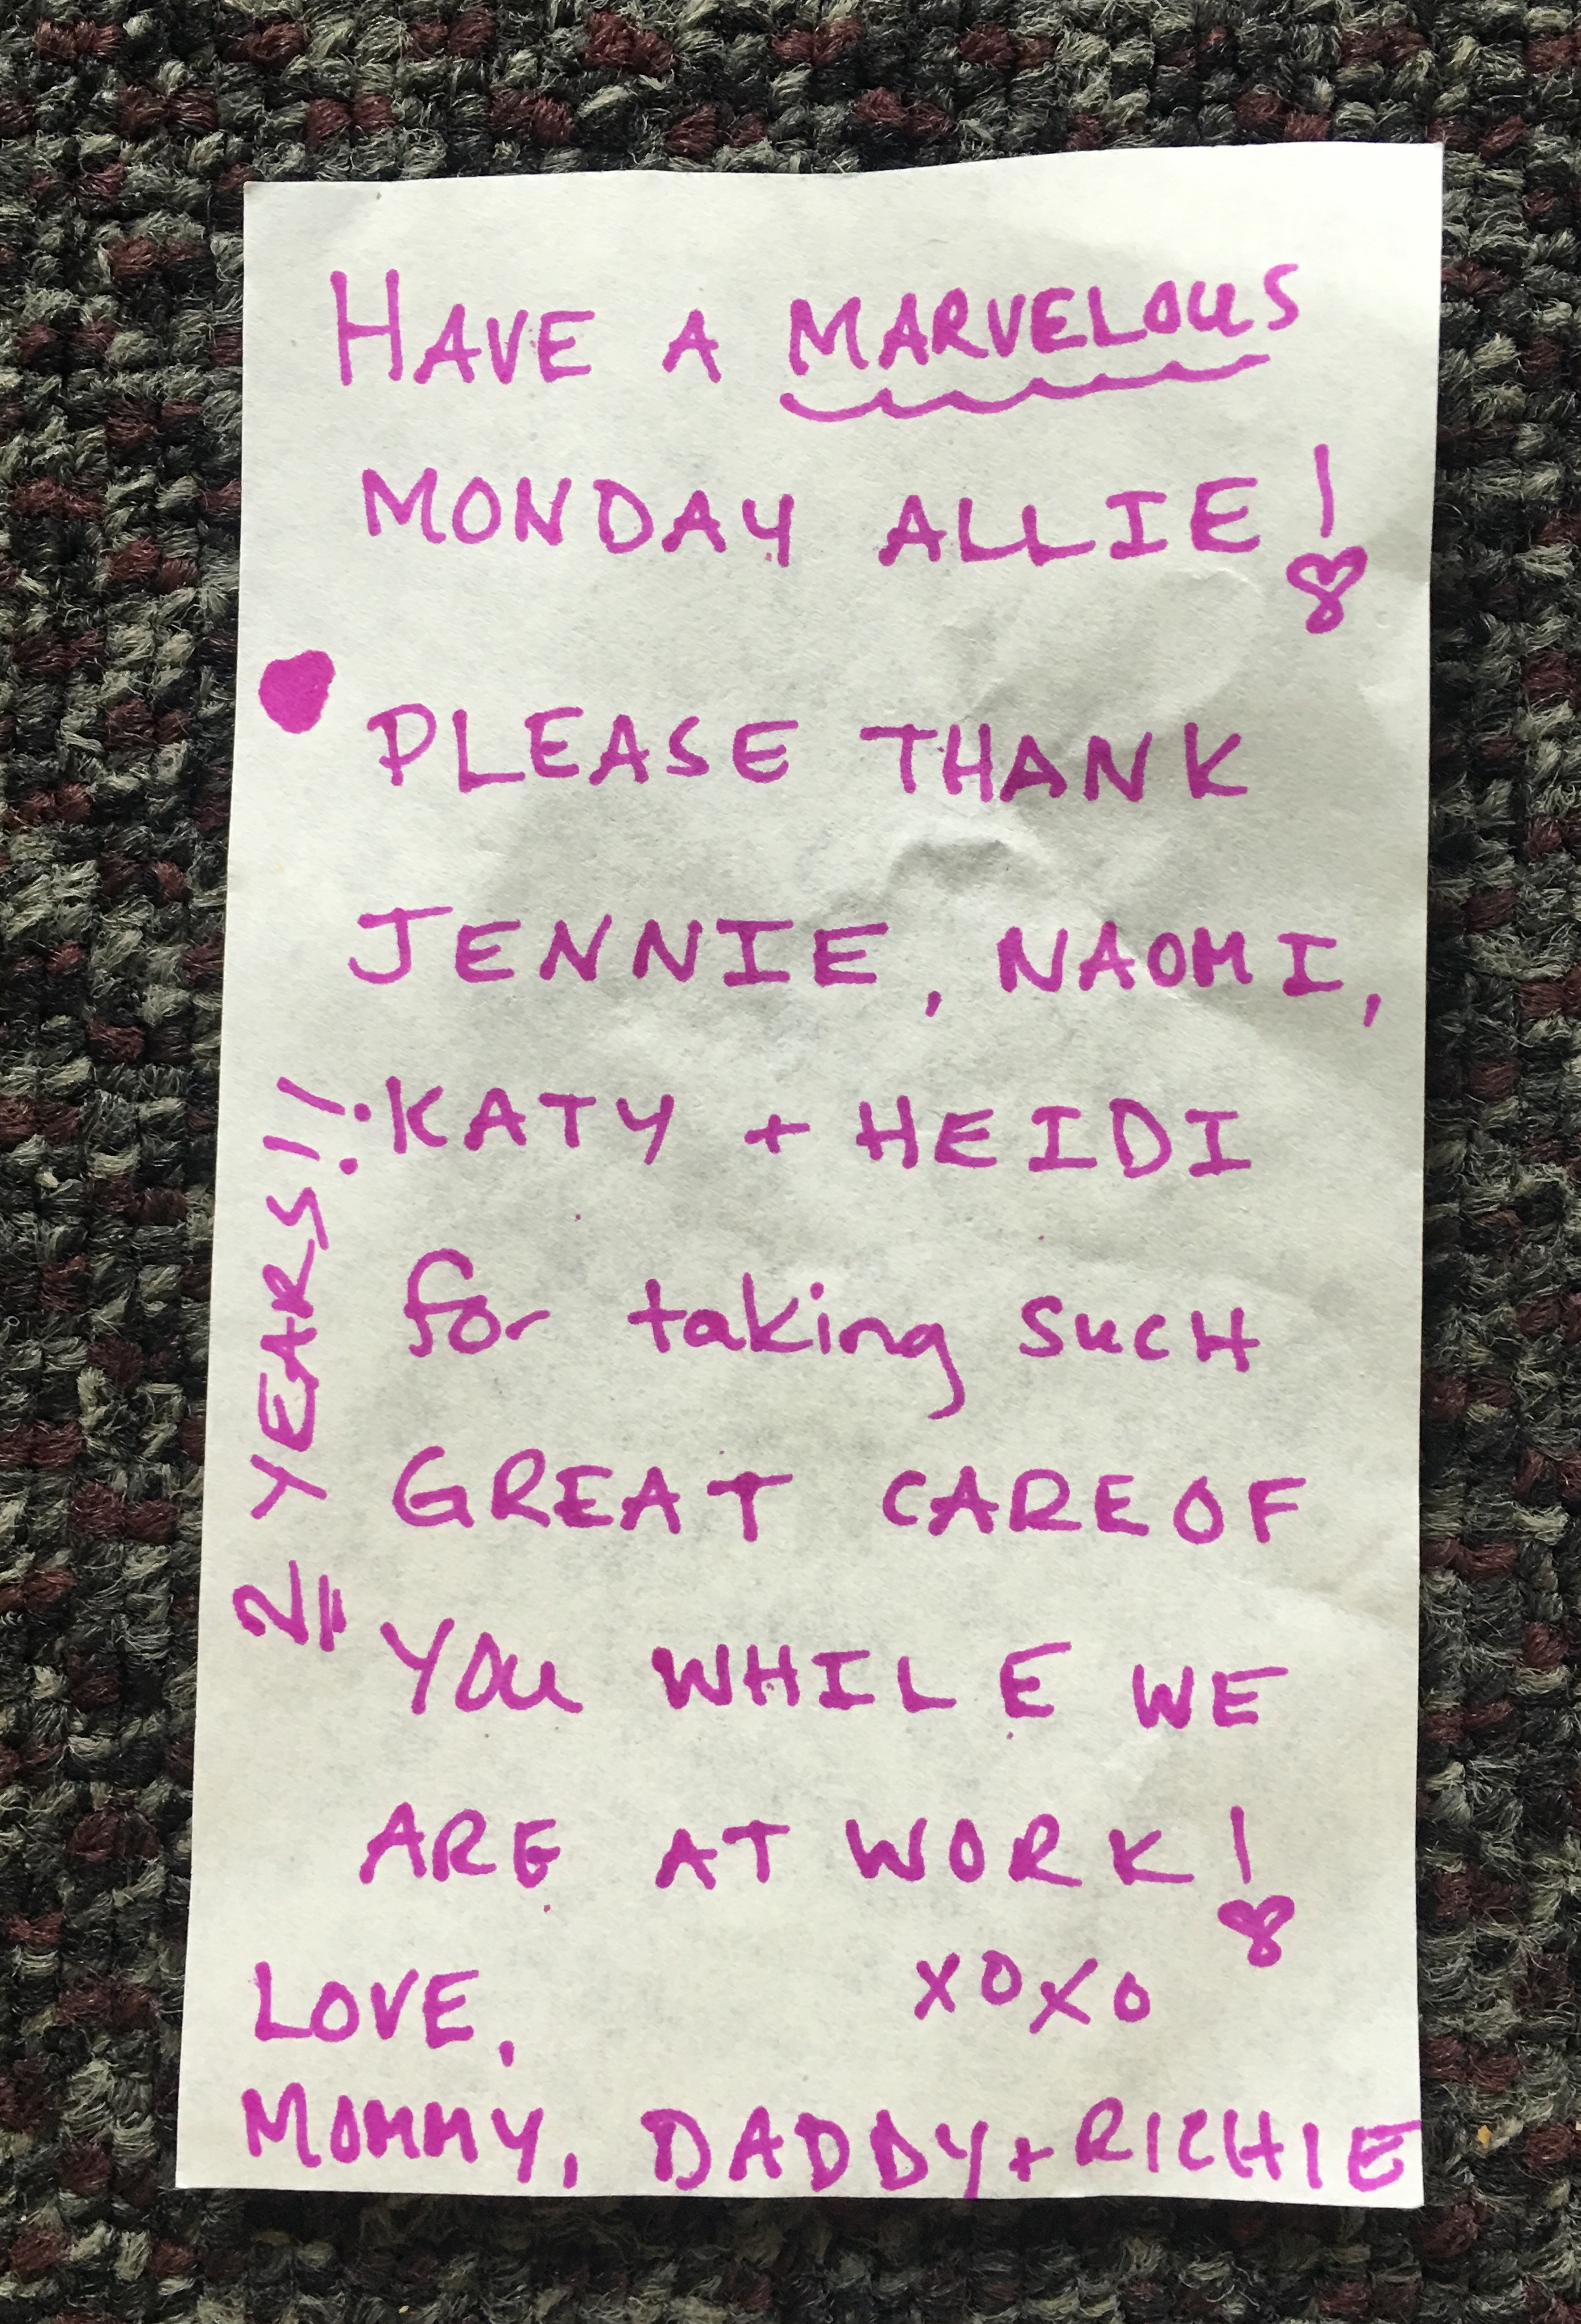 HAVE A MARVELOUS
MONDAY ALLIE!
PLEASE THANK
JENNIE, NAOMI,
KATY + HEIDI
for taking sucH
GREAT CARE OF
YOu WHILE WE
ARE AT WORK!
XOXO
LOVE,
MOMMY, DADDY + RICHIE
2 YEARS!!